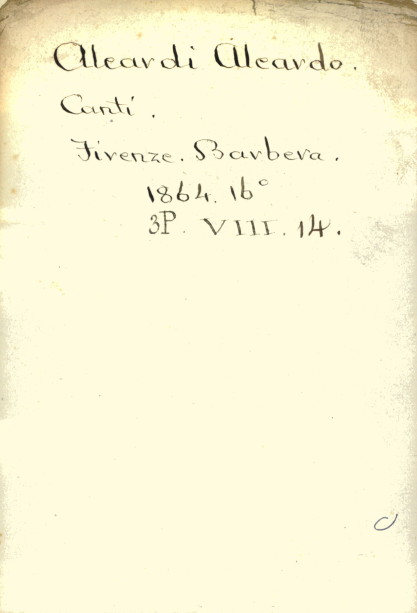 Aleardi Aleardo.
Canti.
Firenze. Barbera.
1864. 16°
3P. VIII. 14.